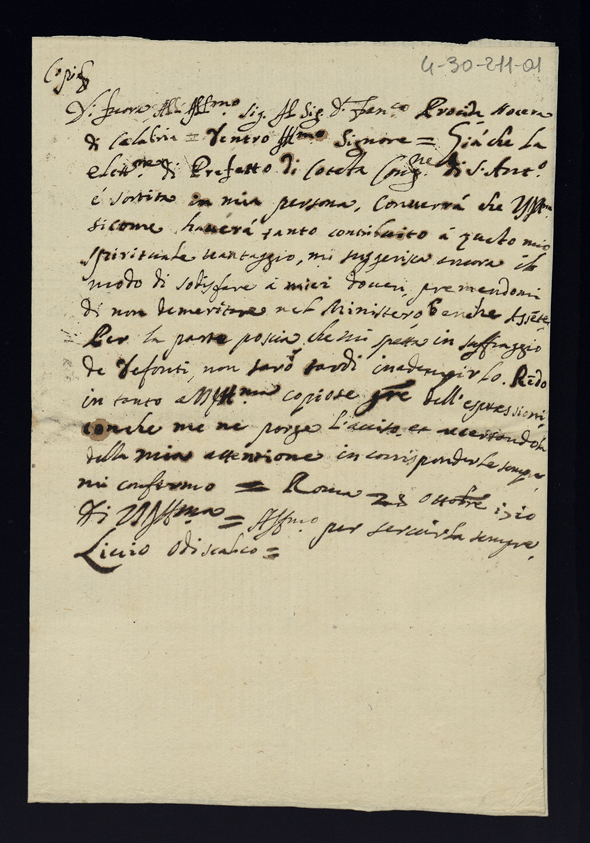 4-30-211-01
Copia
Di fuora All Illmo Sig. Il Sig. D. Fran.co Procida Nocera
di Calabria = Dentro Illmo Signore = Già che la
elett.ne di Prefetto di Cotesta Cong.ne di S. Ant.o
é sortita in mia persona, Converrá che VSIllma
sicome haverá tanto contribuito á questo mio
spirituale vantaggio, mi suggerisca ancora il
modo di sodisfare á miei doveri, premendomi
di non demeritare nel Ministero
Per la parte poscia che mi spetta in suffraggio
de Defonti, non sarò tardi inadempirlo. Redo
in tanto a VSIllma copiose gre dell'espressioni
conche me ne porge l'aviso, et accertandola
della mia attentione in corrisponderle sempre
mi confermo = Roma 28 Ottobre 1710
Di VSIllma = Affmo per servirla sempre
Livio Odiscalco =